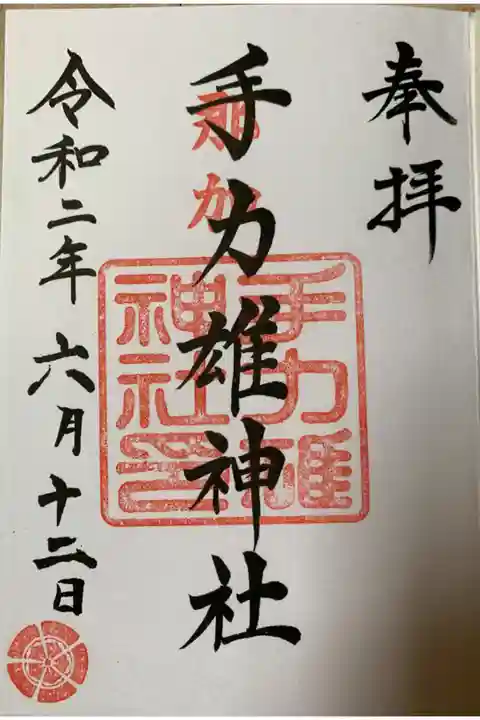 奉拝
那加
手力雄神社
手力雄神社之印
令和二年六月十二日